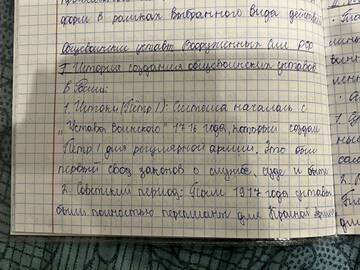 дами в рамках выбранного вида действий
Общевоинские уставы Вооруженных Сил РФ
I История создания общевоинских уставов
в России:
1. Истоки (Пётр I): Система началась с
„Устава Воинского" 1716 года, который создал
Пётр I для регулярной армии. Это был
первый свод законов о службе, суде и быте
2. Советский период: После 1917 года уставы
были полностью переписаны для Красной армии